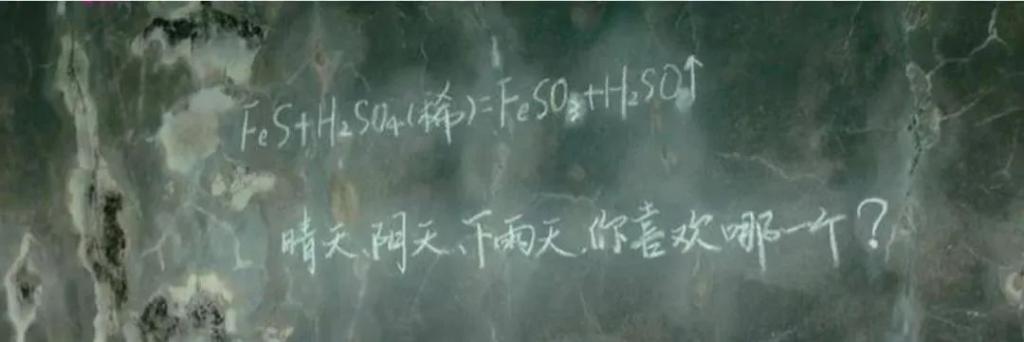 FeS+H₂SO₄(稀)=FeSO₃+H₂SO↑
晴天、阴天、下雨天,你喜欢哪一个?